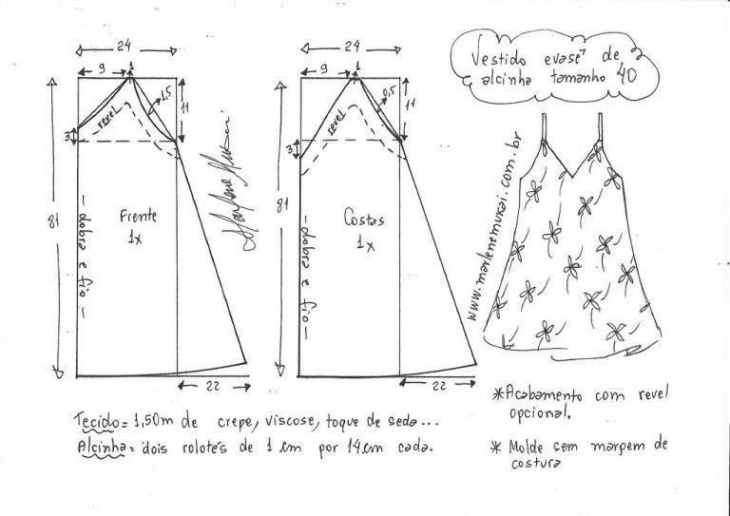 Vestido evasê de
alcinha tamanho 40
24
9
1
1,5
11
revel
3
81
Frente
1x
- dobra e fio -
22
Marlene Mukai
24
9
1
0,5
11
revel
3
81
Costas
1x
- dobra e fio -
22
www.marlenemukai.com.br
*Acabamento com revel
opcional.
* Molde sem margem de
costura
Tecido = 1,50m de crepe, viscose, toque de seda...
Alcinha = dois rolotês de 1 cm por 14cm cada.